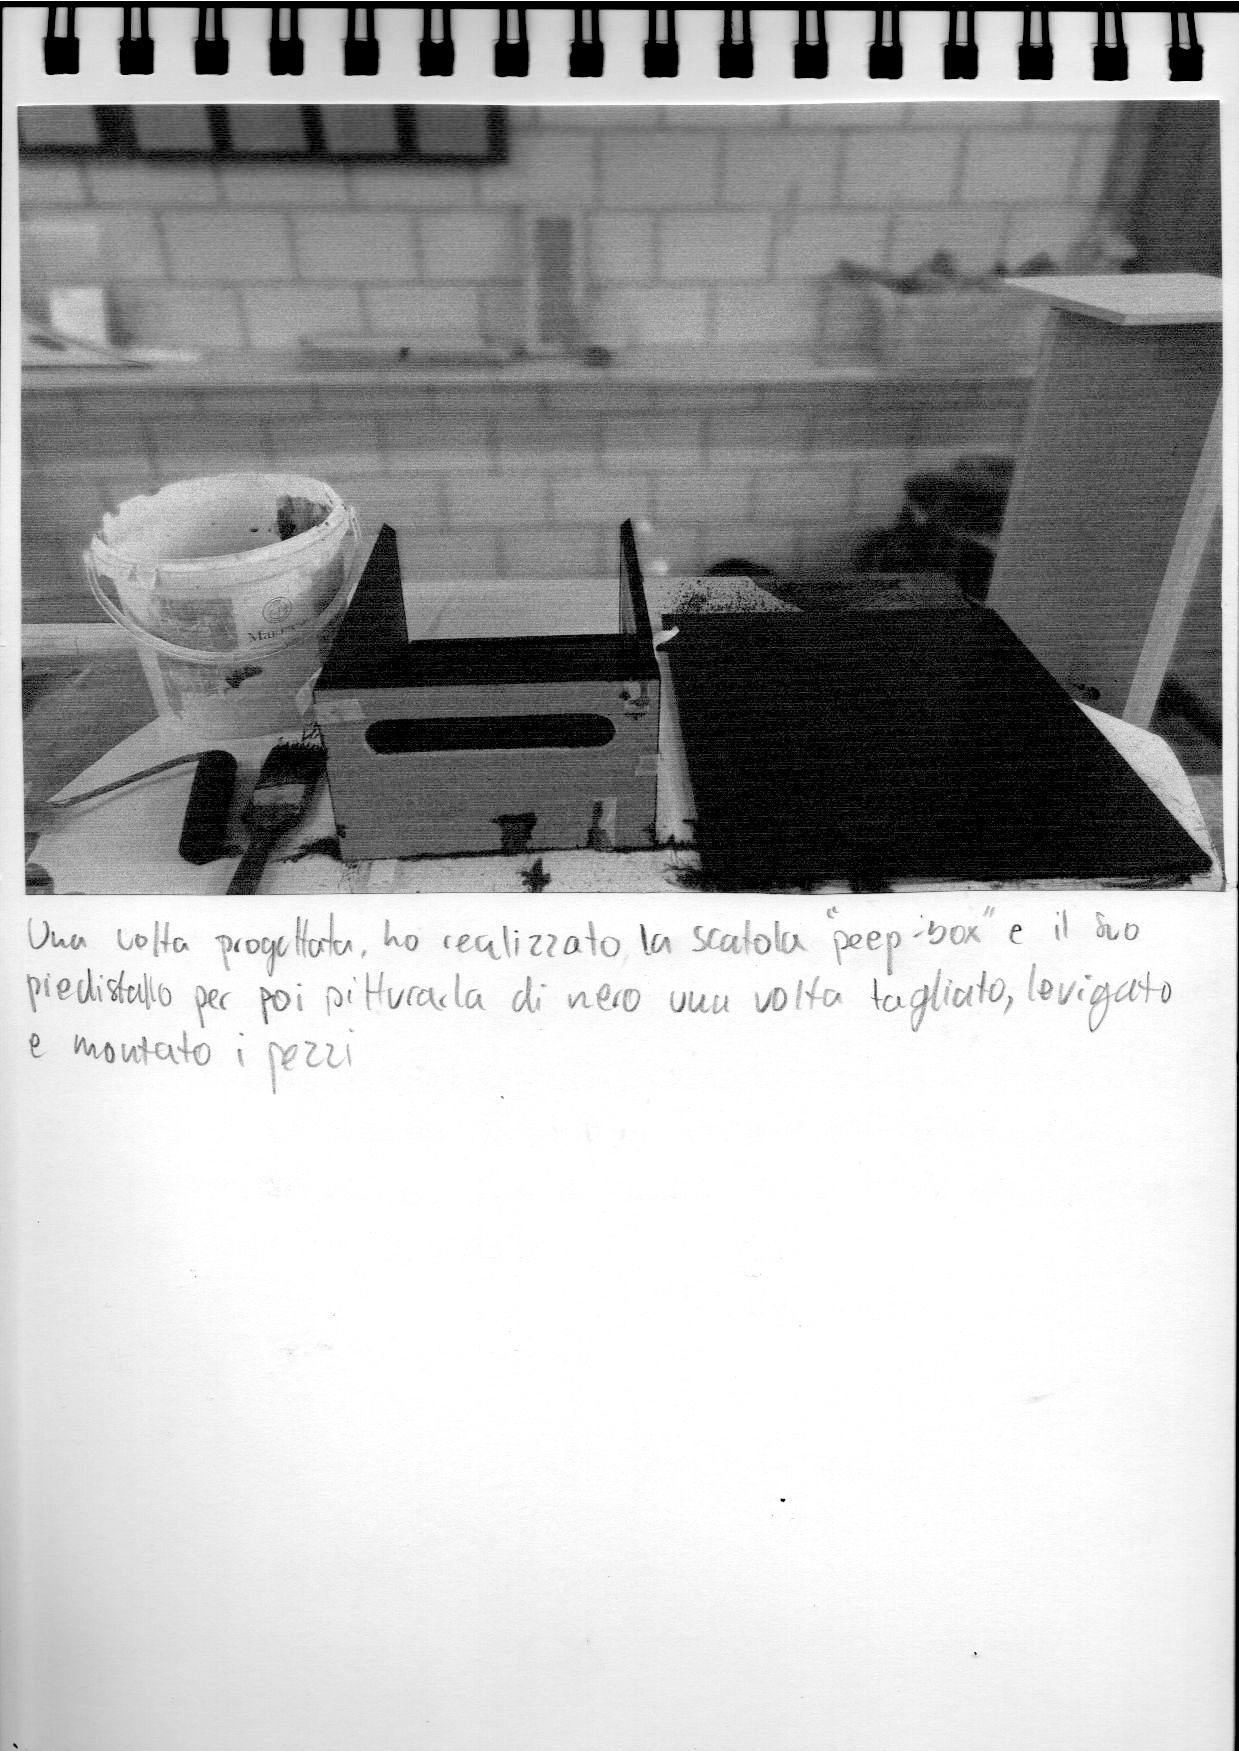 Una volta progettata, ho realizzato la scatola "peep-box" e il suo
piedistallo per poi pitturarla di nero una volta tagliato, levigato
e montato i pezzi